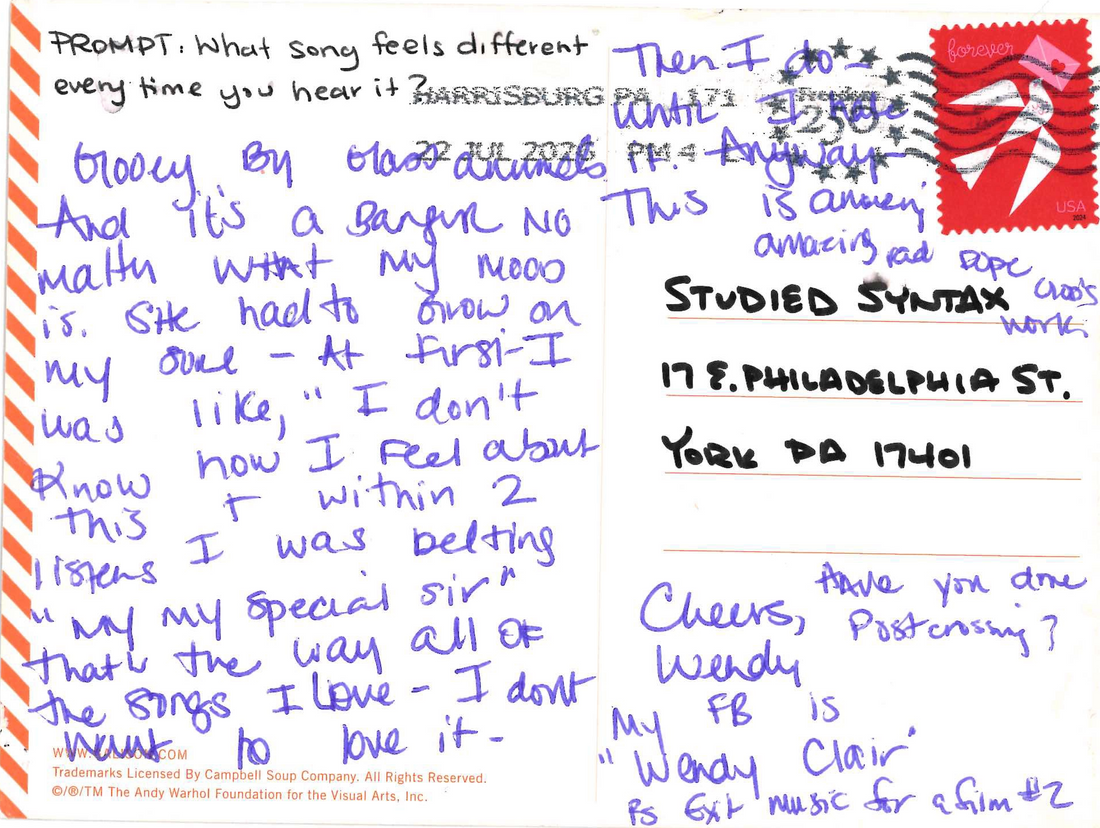 PROMPT: What song feels different
every time you hear it?
Gooey By Glass animals
And it's a Banger NO
matter what my mood
is. SHe had to Grow on
my soul - At first I
was like, "I don't
know how I feel about
this + within 2
listens I was belting
"My my special sir"
that's the way all OF
the songs I Love - I dont
want to love it -
Then I do -
until I hate
it. Anyway -
This is
amazing rad DOPE
work
HARRISBURG PA 171
22 JUL PM 4 L
250
forever
USA
2024
STUDIED SYNTAX
17 E. PHILADELPHIA ST.
YORK PA 17401
Have you done
Postcrossing?
Cheers,
Wendy
My FB is
"Wendy Clair"
Ps Exit music for a film #2
Trademarks Licensed By Campbell Soup Company. All Rights Reserved.
©/®/TM The Andy Warhol Foundation for the Visual Arts, Inc.